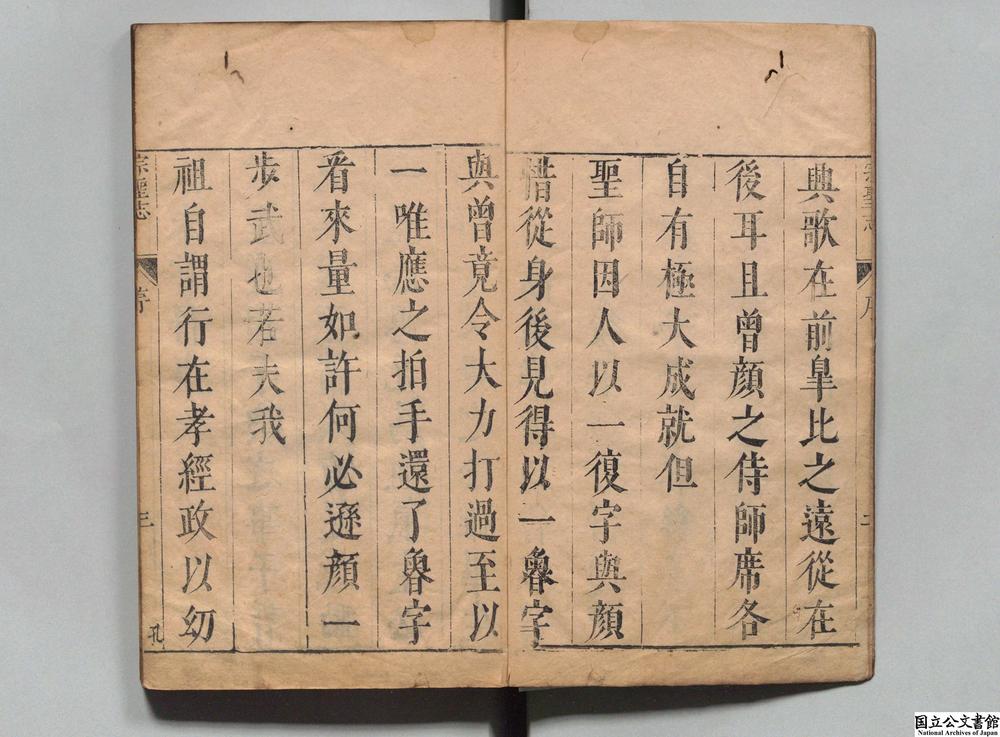 典歌在前皐比之遠從在
後耳且曾顔之侍師席各
自有極大成就但
聖師因人以一復字與顔
惜從身後見得以一魯字
與曾竟令大力打過至以
一唯應之拍手還了魯字
看來量如許何必遜顔一
步武也若夫我
祖自謂行在孝經政以幼
宗聖志
序
三
孔
宗聖志
序
国立公文書館
National Archives of Japan